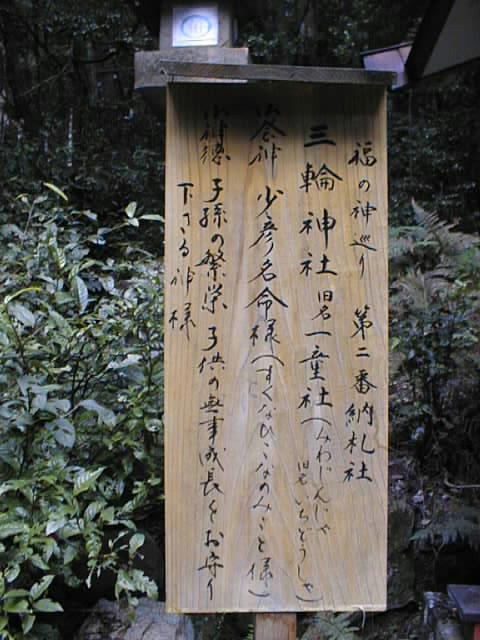 福の神巡り 第二番納札社
三輪神社 旧名一童社(みわじんじゃ
旧名いちどうしゃ)
御祭神 少彦名命様(すくなひこなのみこと様)
御神徳 子孫の繁栄 子供の無事成長をお守り
下さる神様